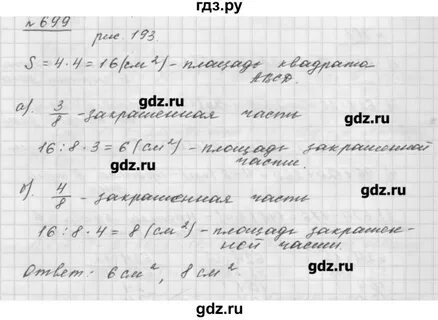 гдз.ру
№ 699
рис. 193
S = 4 · 4 = 16 (см²) - площадь квадрата
ABCD.
gdz.ru
а). 3/8 - закрашенная часть
gdz.ru
16 : 8 · 3 = 6 (см²) - площадь закрашенной
части.
gdz.ru
б). 4/8 - закрашенная часть
gdz.ru
16 : 8 · 4 = 8 (см²) - площадь закрашен-
ной части.
gdz.ru
Ответ: 6 см², 8 см².
gdz.ru